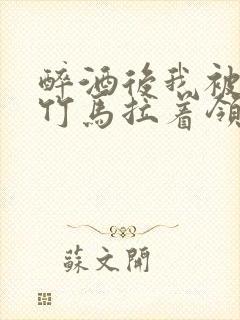 醉酒後我被
竹馬拉着領
蘇文開